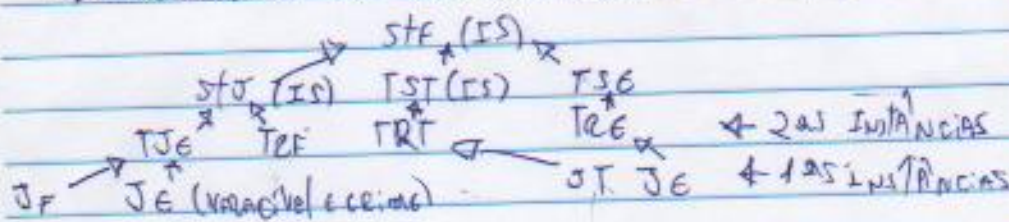 STF (IS)
STJ (IS) TST (IS) TSE
TJE TRF TRT TRE 2as INSTÂNCIAS
JF JE (VARA CÍVEL E CRIME) JT JE 1as INSTÂNCIAS